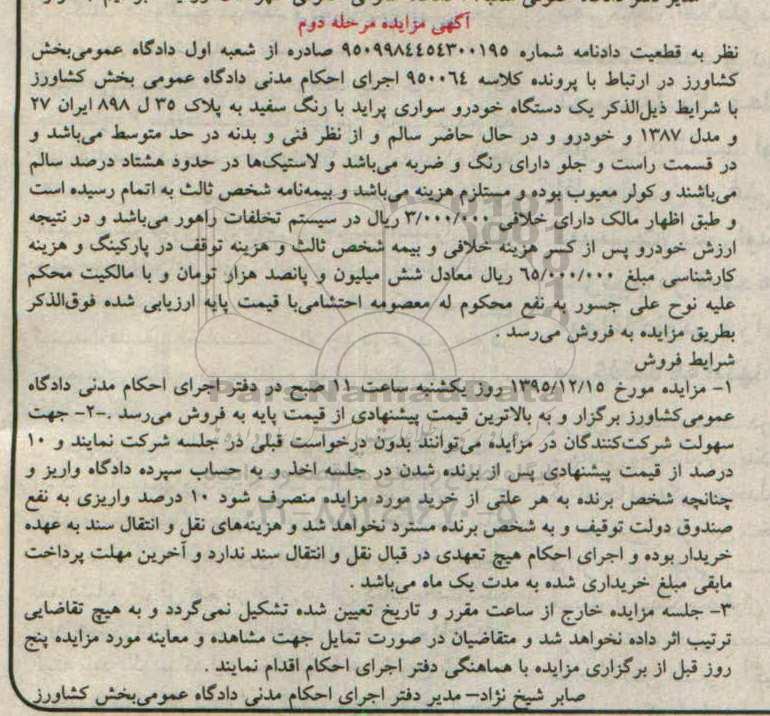 آگهی مزایده مرحله دوم
نظر به قطعیت دادنامه شماره ۹۵۰۹۹۸٤٤٥٤۳۰۰۱۹۵ صادره از شعبه اول دادگاه عمومی‌بخش
کشاورز در ارتباط با پرونده کلاسه ۹۵۰۰٦٤ اجرای احکام مدنی دادگاه عمومی بخش کشاورز
با شرایط ذیل‌الذکر یک دستگاه خودرو سواری پراید با رنگ سفید به پلاک ۳۵ ل ۸۹۸ ایران ۲۷
و مدل ۱۳۸۷ و خودرو و در حال حاضر سالم و از نظر فنی و بدنه در حد متوسط می‌باشد و
در قسمت راست و جلو دارای رنگ و ضربه می‌باشد و لاستیک‌ها در حدود هشتاد درصد سالم
می‌باشند و کولر معیوب بوده و مستلزم هزینه می‌باشد و بیمه‌نامه شخص ثالث به اتمام رسیده است
و طبق اظهار مالک دارای خلافی ۳/۰۰۰/۰۰۰ ریال در سیستم تخلفات راهور می‌باشد و در نتیجه
ارزش خودرو پس از کسر هزینه خلافی و بیمه شخص ثالث و هزینه توقف در پارکینگ و هزینه
کارشناسی مبلغ ٦٥/۰۰۰/۰۰۰ ریال معادل شش میلیون و پانصد هزار تومان و با مالکیت محکم
علیه نوح علی جسور به نفع محکوم له معصومه احتشامی‌با قیمت پایه ارزیابی شده فوق‌الذکر
بطریق مزایده به فروش می‌رسد .
شرایط فروش
۱- مزایده مورخ ۱۳۹۵/۱۲/۱۵ روز یکشنبه ساعت ۱۱ صبح در دفتر اجرای احکام مدنی دادگاه
عمومی‌کشاورز برگزار و به بالاترین قیمت پیشنهادی از قیمت پایه به فروش می‌رسد .-۲- جهت
سهولت شرکت‌کنندگان در مزایده می‌توانند بدون درخواست قبلی در جلسه شرکت نمایند و ۱۰
درصد از قیمت پیشنهادی پس از برنده شدن در جلسه اخذ و به حساب سپرده دادگاه واریز و
چنانچه شخص برنده به هر علتی از خرید مورد مزایده منصرف شود ۱۰ درصد واریزی به نفع
صندوق دولت توقیف و به شخص برنده مسترد نخواهد شد و هزینه‌های نقل و انتقال سند به عهده
خریدار بوده و اجرای احکام هیچ تعهدی در قبال نقل و انتقال سند ندارد و آخرین مهلت پرداخت
مابقی مبلغ خریداری شده به مدت یک ماه می‌باشد .
۳- جلسه مزایده خارج از ساعت مقرر و تاریخ تعیین شده تشکیل نمی‌گردد و به هیچ تقاضایی
ترتیب اثر داده نخواهد شد و متقاضیان در صورت تمایل جهت مشاهده و معاینه مورد مزایده پنج
روز قبل از برگزاری مزایده با هماهنگی دفتر اجرای احکام اقدام نمایند .
صابر شیخ نژاد- مدیر دفتر اجرای احکام مدنی دادگاه عمومی‌بخش کشاورز
ParsNamadData